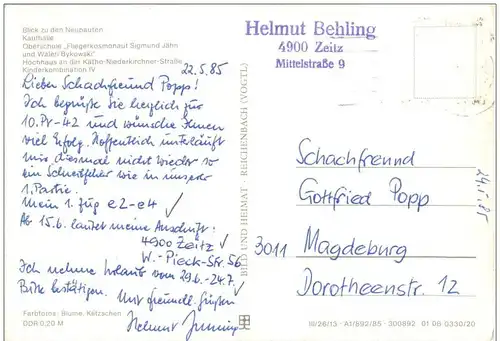 Blick zu den Neubauten
Kaufhalle
Oberschule „Fliegerkosmonaut Sigmund Jähn
und Waleri Bykowski"
Hochhaus an der Käthe-Niederkirchner-Straße
Kinderkombination IV
22.5.85
Lieber Schachfreund Popp!
Ich begrüße Sie herzlich zur
10.Pr-42 und wünsche Ihnen
viel Erfolg. Hoffentlich unterläuft
mir diesmal nicht wieder so
ein Schreibfehler wie in unserer
1. Partie.
Mein 1. Zug e2-e4 ✓
Ab 15.6. lautet meine Anschrift:
4900 Zeitz ✓
W.-Pieck-Str. 56
Ich nehme Urlaub vom 29.6.-24.7. ✓
Bitte bestätigen. Mit freundl. Grüßen
Helmut
Farbfotos: Blume, Kötzschen
DDR 0,20 M
BILD UND HEIMAT REICHENBACH (VOGTL)
Helmut Behling
4900 Zeitz
Mittelstraße 9
Schachfreund
Gottfried Popp
3011 Magdeburg
Dorotheenstr. 12
24.5.85
III/26/13 · A1/892/85 · 300892 01 06 0330/20